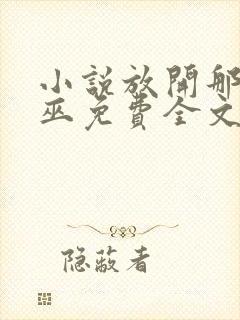 小説放開那
巫免費全文
隐蔽者